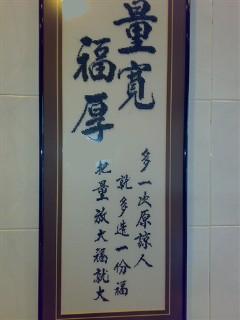 量寬
福厚
多一次原諒人
就多造一份福
把量放大福就大